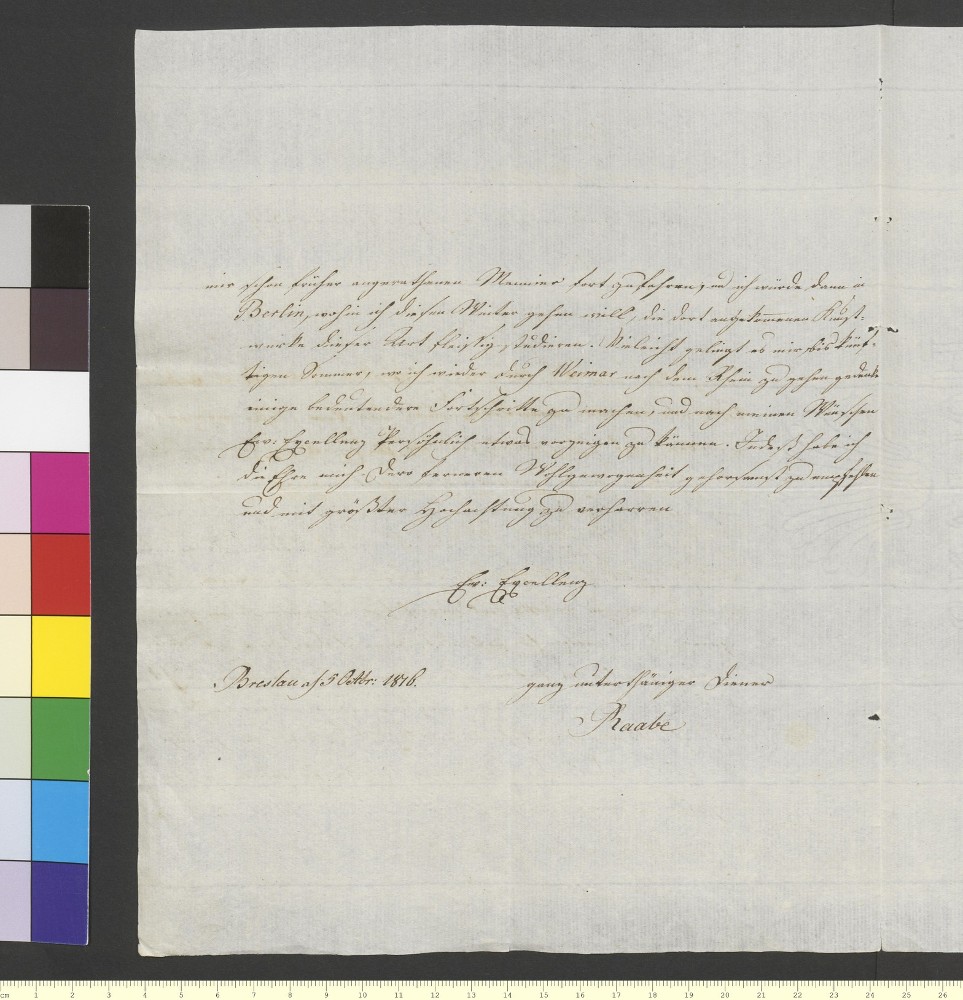 mir schon früher angerathenen Manier fort zu fahren, und ich würde dann in
Berlin, wohin ich diesen Winter gehen will, die dort angekommenen Kunst-
werke dieser Art fleißig studieren. Vieleicht gelingt es mir, bis künf-
tigen Sommer, wo ich wieder durch Weimar nach dem Rhein zu gehen gedenke
einige bedeutendere Fortschritte zu machen, und nach meinen Wünschen
Ew: Excellenz Persöhnlich etwas vorzeigen zu können. Indeß habe ich
die Ehre mich Dero ferneren Wohlgewogenheit gehorsamst zu empfehlen
und mit größter Hochachtung zu verharren
Ew: Excellenz
Breslau 5 Octbr: 1816.
ganz unterthäniger Diener
Raabe